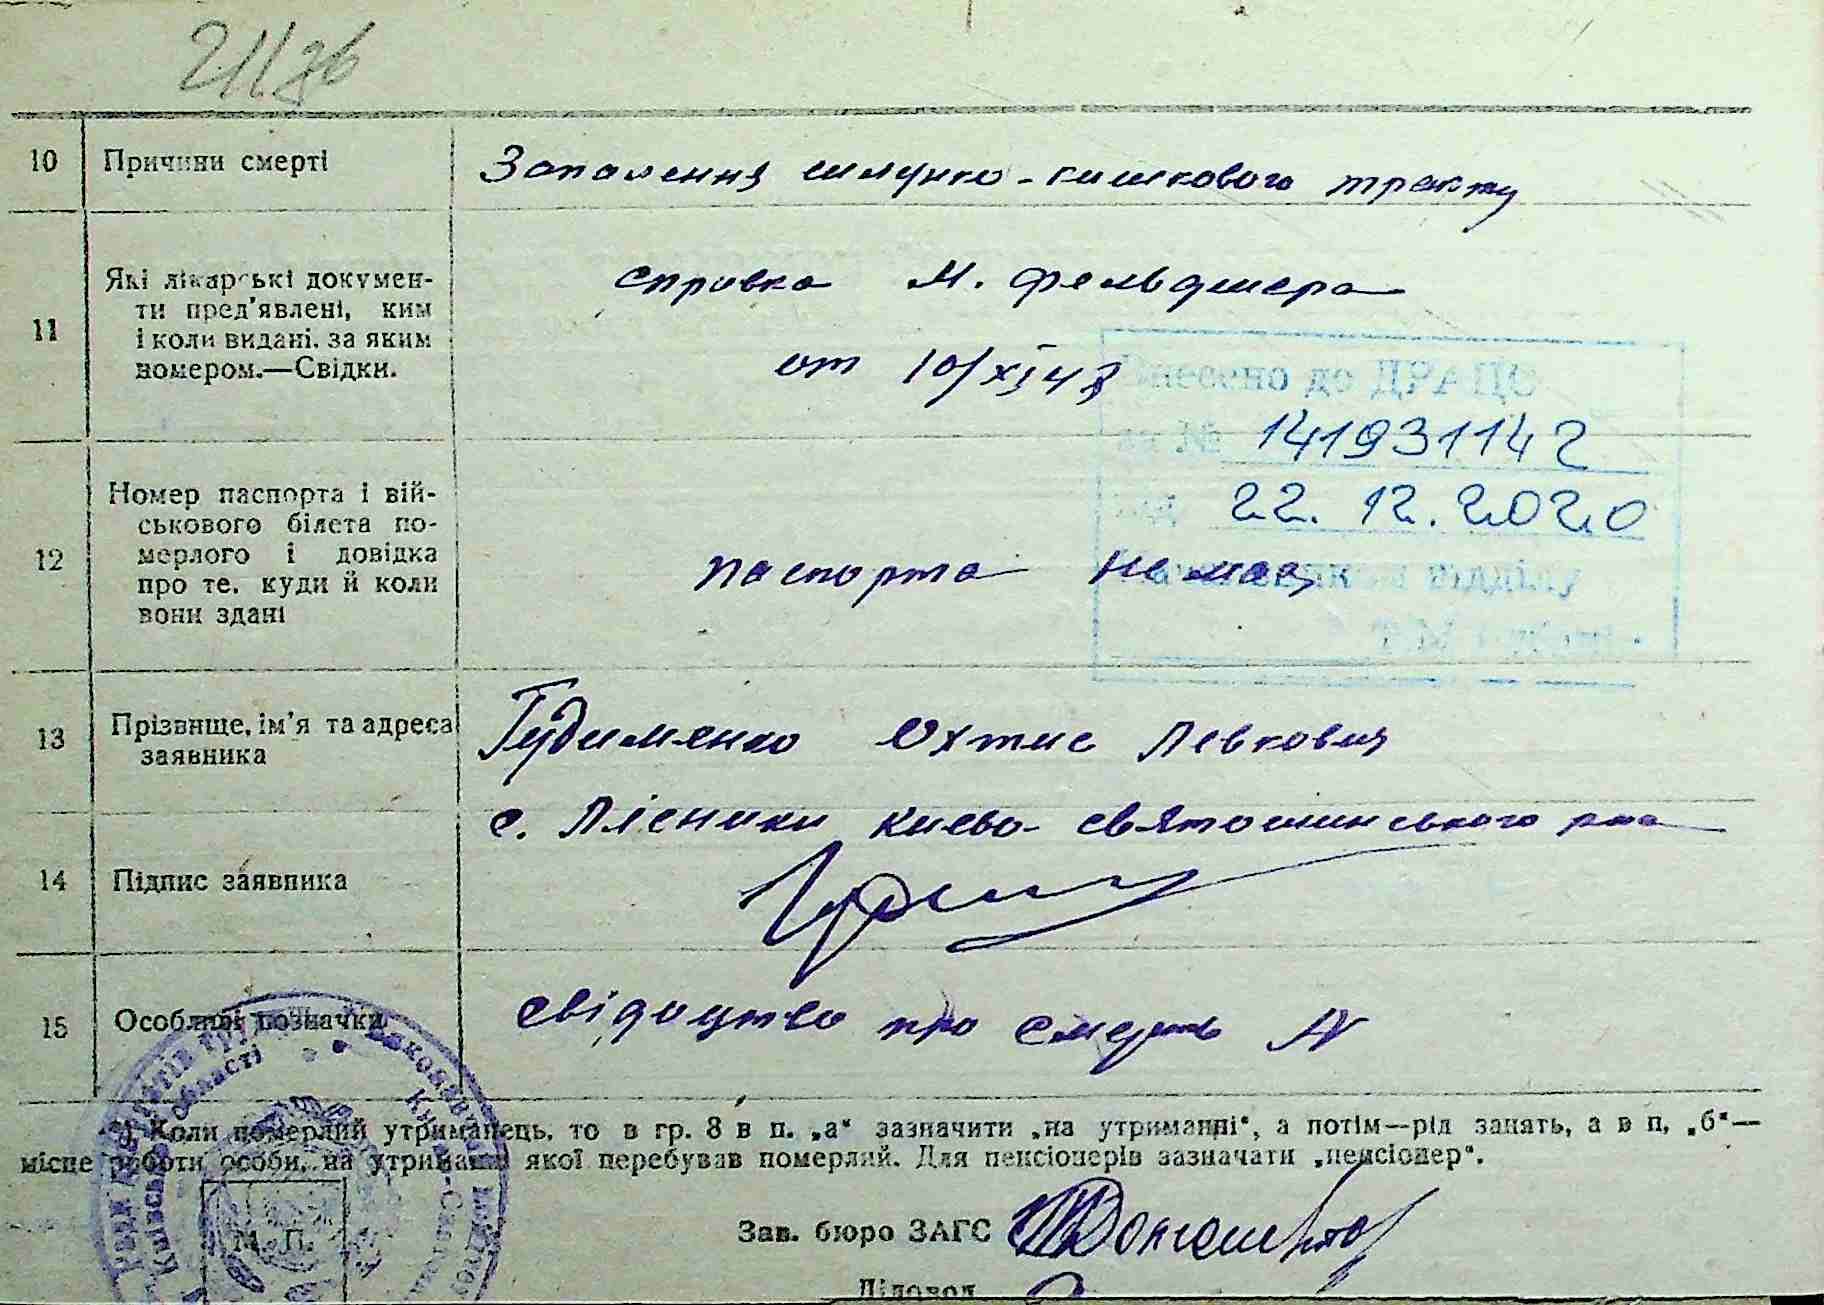 10 Причини смерті Запалення шлунко-кишкового тракту
11 Які лікарські докумен-
ти пред'явлені, ким
і коли видані, за яким
номером.—Свідки.
справка М. фельдшера
от 10/XI 48
Внесено до ДРАЦС
за № 141931142
від 22.12.2020
відділу
12 Номер паспорта і вій-
ськового білета по-
мерлого і довідка
про те, куди й коли
вони здані
паспорта немає
13 Прізвище, ім'я та адреса
заявника
Гудименко Охтис Левкович
с. Лісники Києво-Святошинського р-на
14 Підпис заявника
15 Особливі позначки Свідоцтво про смерть №
Коли померлий утриманець, то в гр. 8 в п. „а“ зазначити „на утриманні“, а потім—рід занять, а в п. „б“—
місце роботи особи, на утриманні якої перебував померлий. Для пенсіонерів зазначати „пенсіонер“.
М. П.
Зав. бюро ЗАГС
Діловод